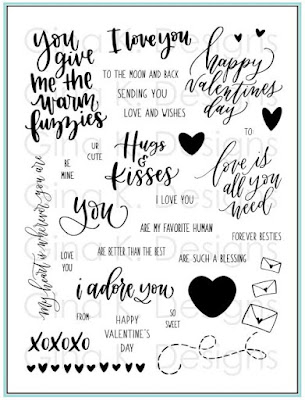 you
give
me the
warm
fuzzies
I love you
TO THE MOON AND BACK
SENDING YOU
LOVE AND WISHES
happy
valentines
day
UR
CUTE
BE
MINE
Hugs
&
Kisses
TO:
love is
all you
need
my heart is wherever you are
you
I LOVE YOU
ARE MY FAVORITE HUMAN
FOREVER BESTIES
ARE BETTER THAN THE BEST
ARE SUCH A BLESSING
LOVE
YOU
i adore you
FROM
HAPPY
VALENTINE'S
DAY
SO
SWEET
XOXOXO
Gina K. Designs
Gina K. Designs
Gina K. Designs
Gina K. Designs